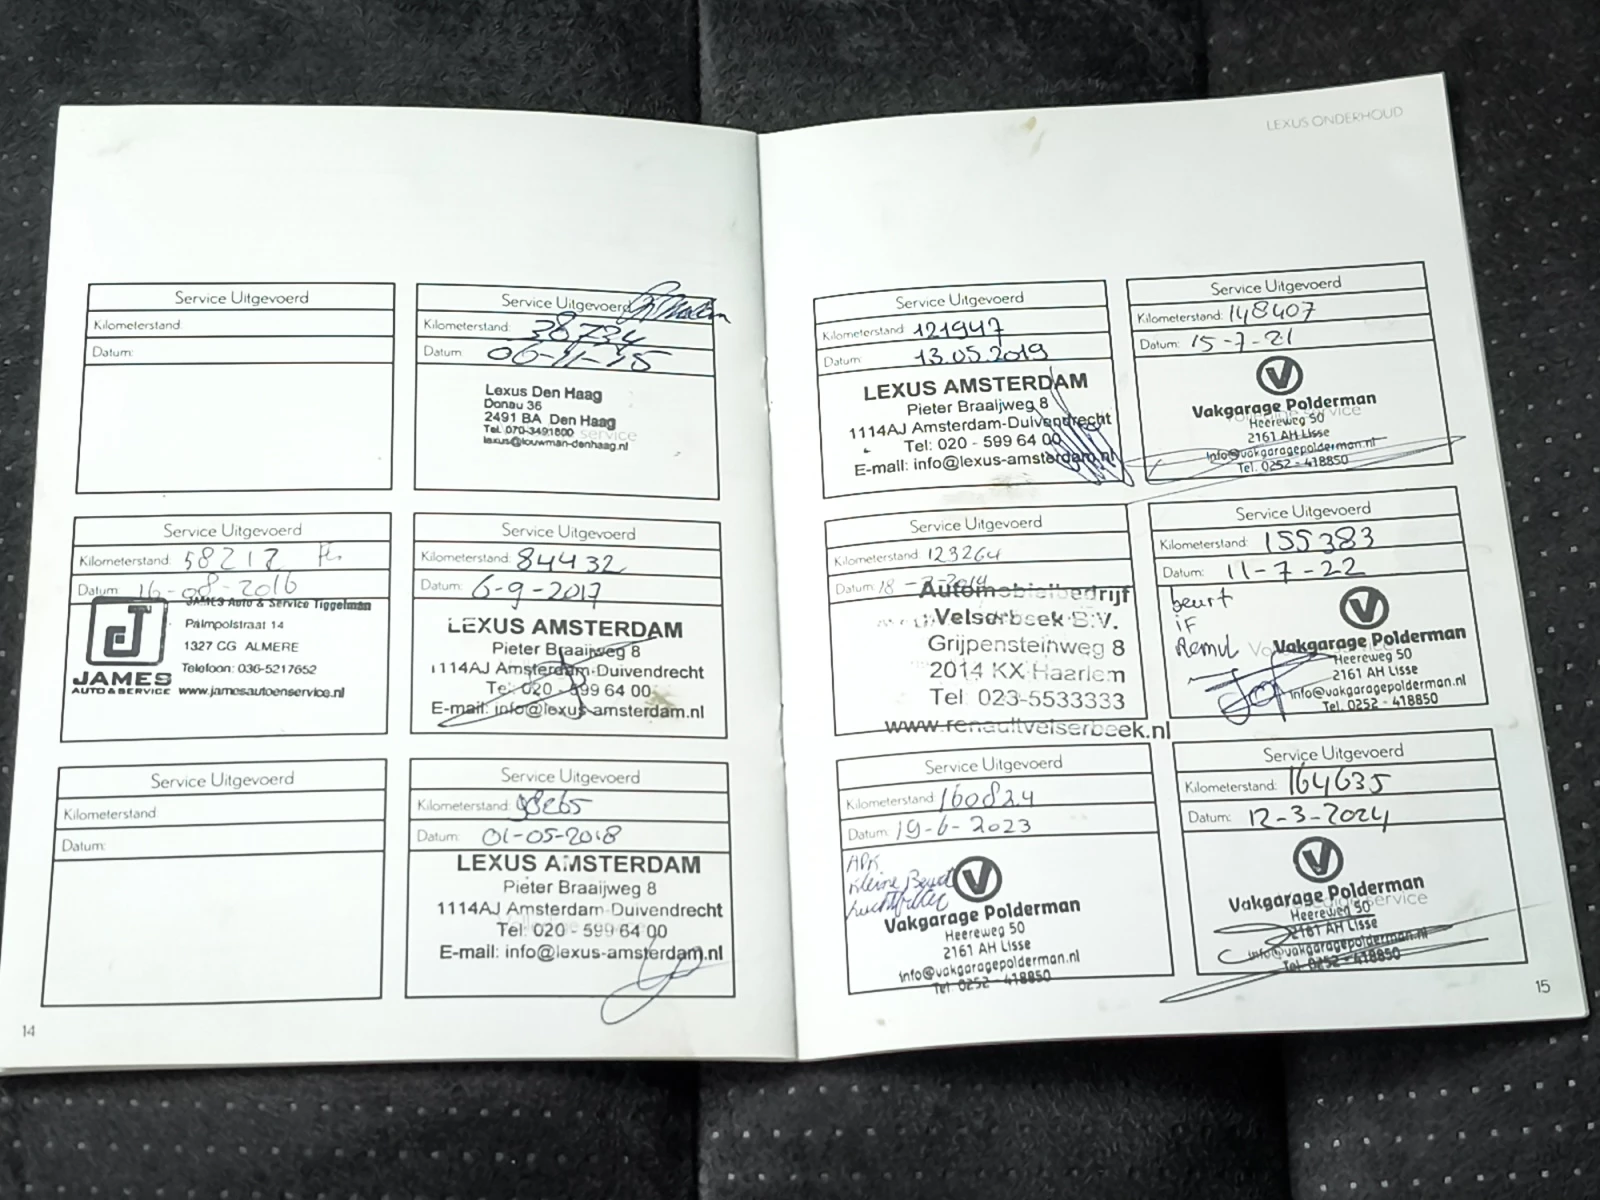 Service Uitgevoerd
Kilometerstand:
Datum:
Service Uitgevoerd
Kilometerstand: 38734
Datum: 06-11-15
Lexus Den Haag
Donau 36
2491 BA Den Haag
Tel. 070-3491800 service
lexus@louwman-denhaag.nl
Service Uitgevoerd
Kilometerstand: 58217
Datum: 16-08-2016
JAMES Auto & Service Tiggelman
Palmpolstraat 14
1327 CG ALMERE
Telefoon: 036-5217652
JAMES
AUTO & SERVICE www.jamesautoenservice.nl
Service Uitgevoerd
Kilometerstand: 84432
Datum: 6-9-2017
LEXUS AMSTERDAM
Pieter Braaijweg 8
1114AJ Amsterdam-Duivendrecht
Tel: 020 - 599 64 00
E-mail: info@lexus-amsterdam.nl
Service Uitgevoerd
Kilometerstand
Datum:
Service Uitgevoerd
Kilometerstand:
Datum: 01-05-2018
LEXUS AMSTERDAM
Pieter Braaijweg 8
1114AJ Amsterdam-Duivendrecht
Tel: 020 - 599 64 00
E-mail: info@lexus-amsterdam.nl
14
LEXUS ONDERHOUD
Service Uitgevoerd
Kilometerstand: 121947
Datum: 13.05.2019
LEXUS AMSTERDAM
Pieter Braaijweg 8
1114AJ Amsterdam-Duivendrecht
Tel: 020 - 599 64 00
E-mail: info@lexus-amsterdam.nl
Service Uitgevoerd
Kilometerstand: 148407
Datum: 15-7-21
Vakgarage Polderman
Heereweg 50
2161 AH Lisse
info@vakgaragepolderman.nl
Tel. 0252 - 418850
Service Uitgevoerd
Kilometerstand: 123264
Datum: 18
Automobielbedrijf
Velserbeek B.V.
Grijpensteinweg 8
2014 KX Haarlem
Tel: 023-5533333
www.renaultvelserbeek.nl
Service Uitgevoerd
Kilometerstand: 155383
Datum: 11-7-22
beurt
Remvl
Vakgarage Polderman
Heereweg 50
2161 AH Lisse
info@vakgaragepolderman.nl
Tel. 0252 - 418850
Service Uitgevoerd
Kilometerstand 160824
Datum: 19-6-2023
APK
Kleine Beurt
Luchtfilter
Vakgarage Polderman
Heereweg 50
2161 AH Lisse
info@vakgaragepolderman.nl
Tel. 0252 - 418850
Service Uitgevoerd
Kilometerstand: 164635
Datum: 12-3-2024
Vakgarage Polderman
Heereweg 50
2161 AH Lisse
info@vakgaragepolderman.nl
Tel. 0252 - 418850
15